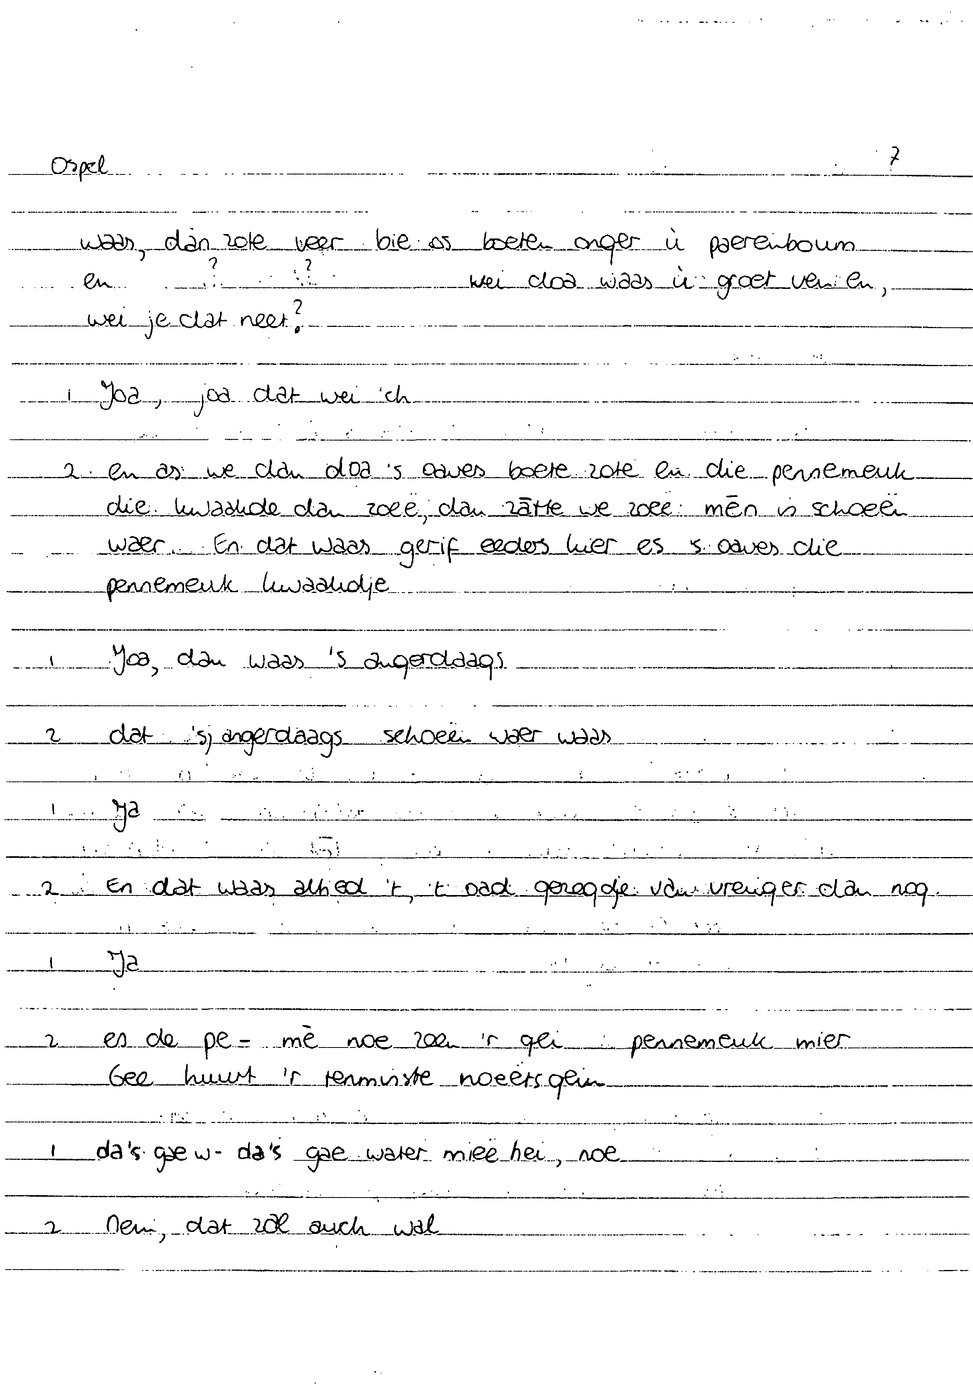 Ospel 7
waas, dàn zote veer bie os boeten onger ù paerenboum
en ? ? wei doa waas ù groet ven en,
wei je dat neet?
1 Joa, joa dat wei 'ch
2. en as we dan doa 's oaves boete zote en die pennemeuk
die kwaakde dan zoeë, dan zātte we zoeë mēn is schoeën
waer. En dat waas gerif eeders hier es 's oaves die
pennemeuk kwaakdje
1 Joa, dan waas 's angerdaags
2 dat 'sj angerdaags schoeën waer waas
1 Ja
2 En dat waas altied 't, 't oad gezegdje van vreuger dan nog.
1 Ja
2 es de pe- mè noe zeen 'r gei pennemeuk mier
Gee huurt 'r tenminste noeëts gein
1 da's gae w- da's gae water mieë hei, noe
2 Nein, dat zāl auch wal